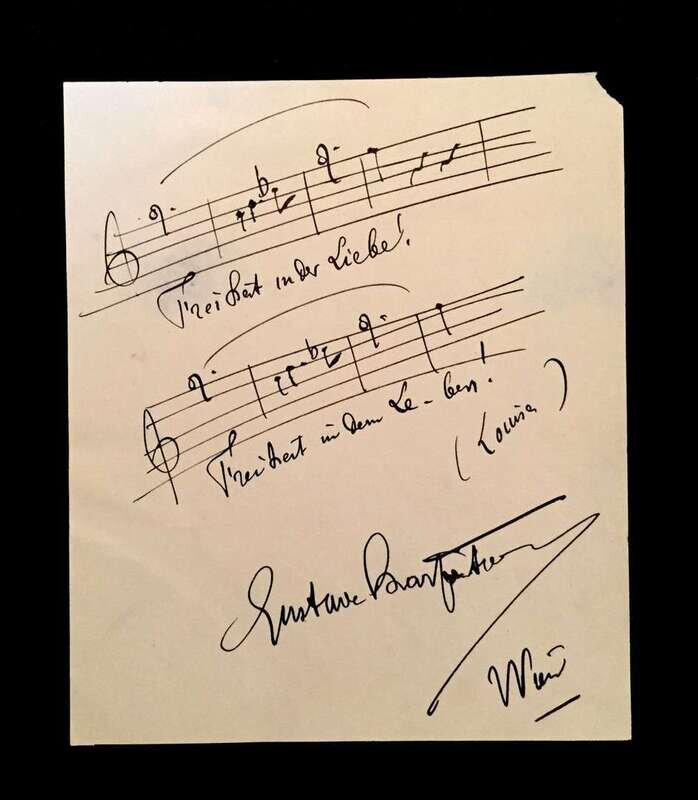 Freiheit in der Liebe!
Freiheit in dem Le-ben!
(Louise)
Gustave Charpentier
Wien